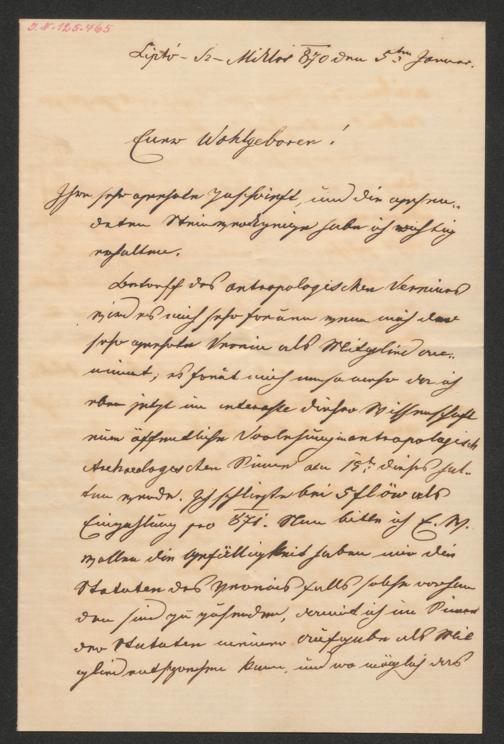 J.N. 125.465
Liptó-Sz-Miklos 870 den 5ten Januar.
Euer Wohlgeboren!
Ihre sehr geehrte Zuschrift, und die gesen-
deten Steinwerkzeuge habe ich richtig
erhalten.
Betreff des antropologischen Vereines
wird es mich sehr freuen wenn mich der
sehr geehrte Verein als Mitglied an-
nimmt; es freut mich umso mehr da ich
eben jetzt im interesse dieser Wissenschaft
eine öffentliche Vorlesung in antropologisch
Archaeologischen Sinne am 15t. dieses hal-
ten werde. Ich schliesse bei 5 fl öw als
Einzahlung pro 871. Nun bitte ich E. W.
wollen die Gefälligkeit haben mir die
Statuten des Vereins falls solche vorhan
den sind zu zusenden, damit ich im Sinne
der Statuten meiner Aufgabe als Mit
glied entsprechen kann, und wo möglich das